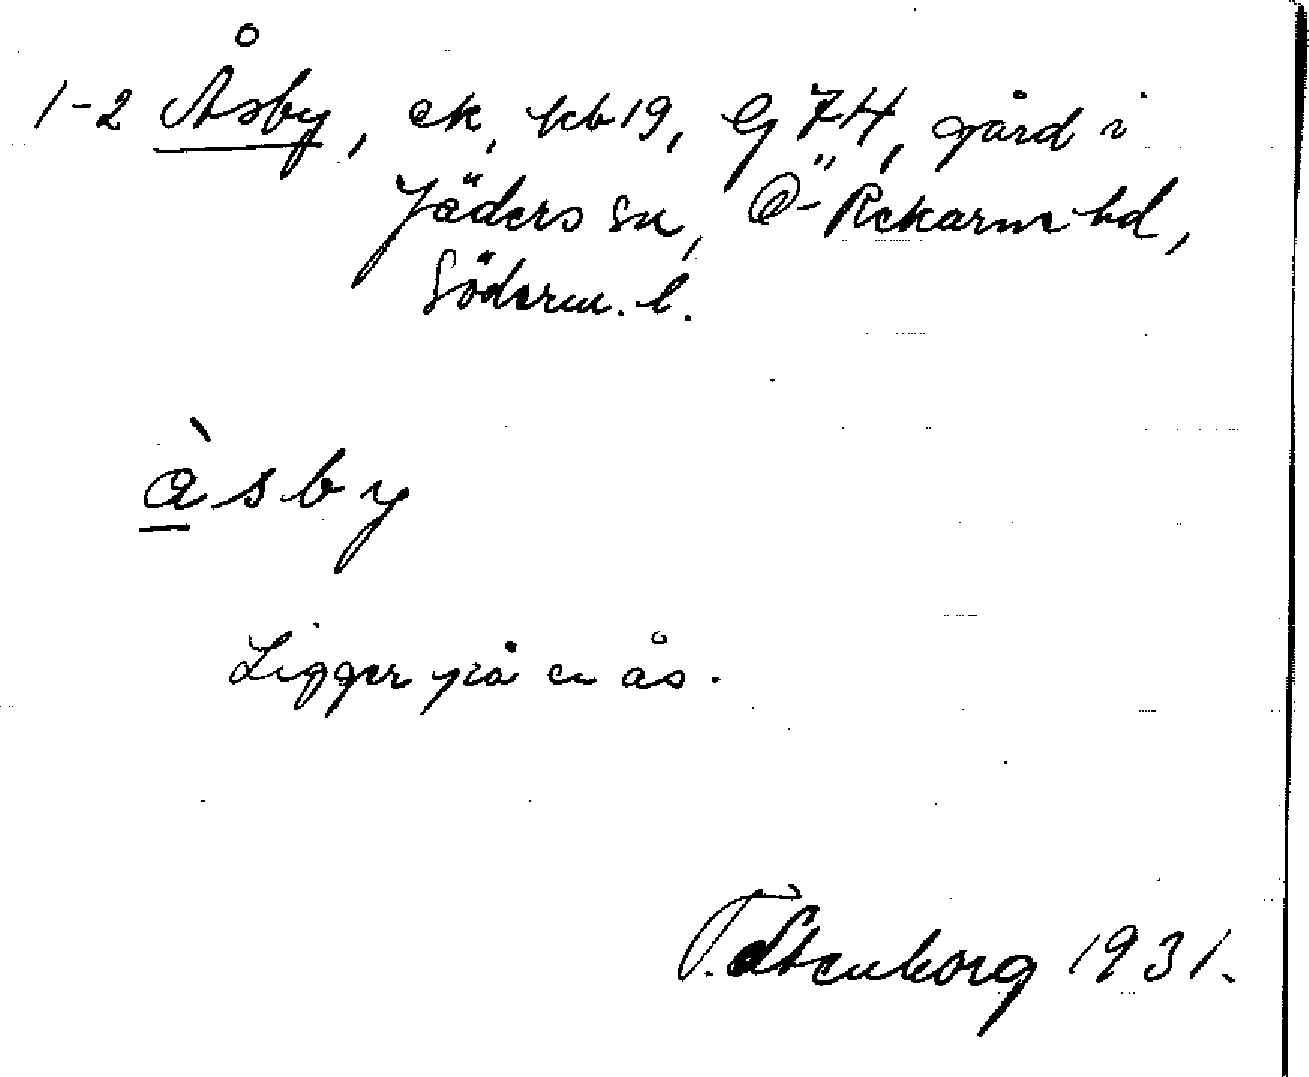 1-2 Åsby, ek, kb 19, G 74, gård i
Jäders sn, Ö-Rekarne hd,
Söderm. l.
àsby
Ligger på en ås.
T. Stenborg 1931.